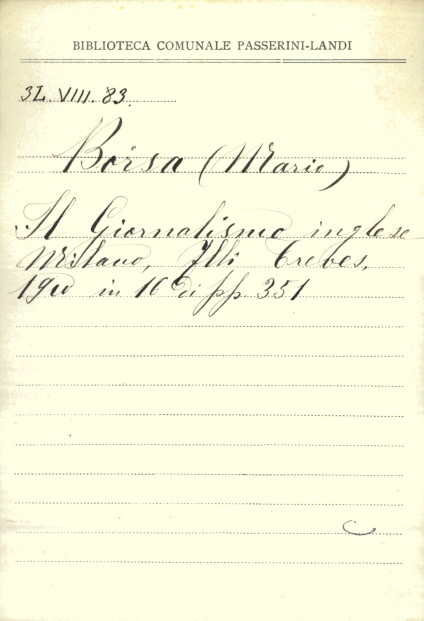 BIBLIOTECA COMUNALE PASSERINI-LANDI
3L. VIII. 83.
Borsa (Mario)
Il Giornalismo inglese
Milano, Flli Treves,
1910 in 16 di pp. 351